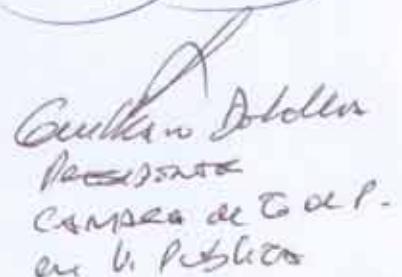 Guillermo
PRESIDENTE
CAMARA de Co de P.
en V. Publica